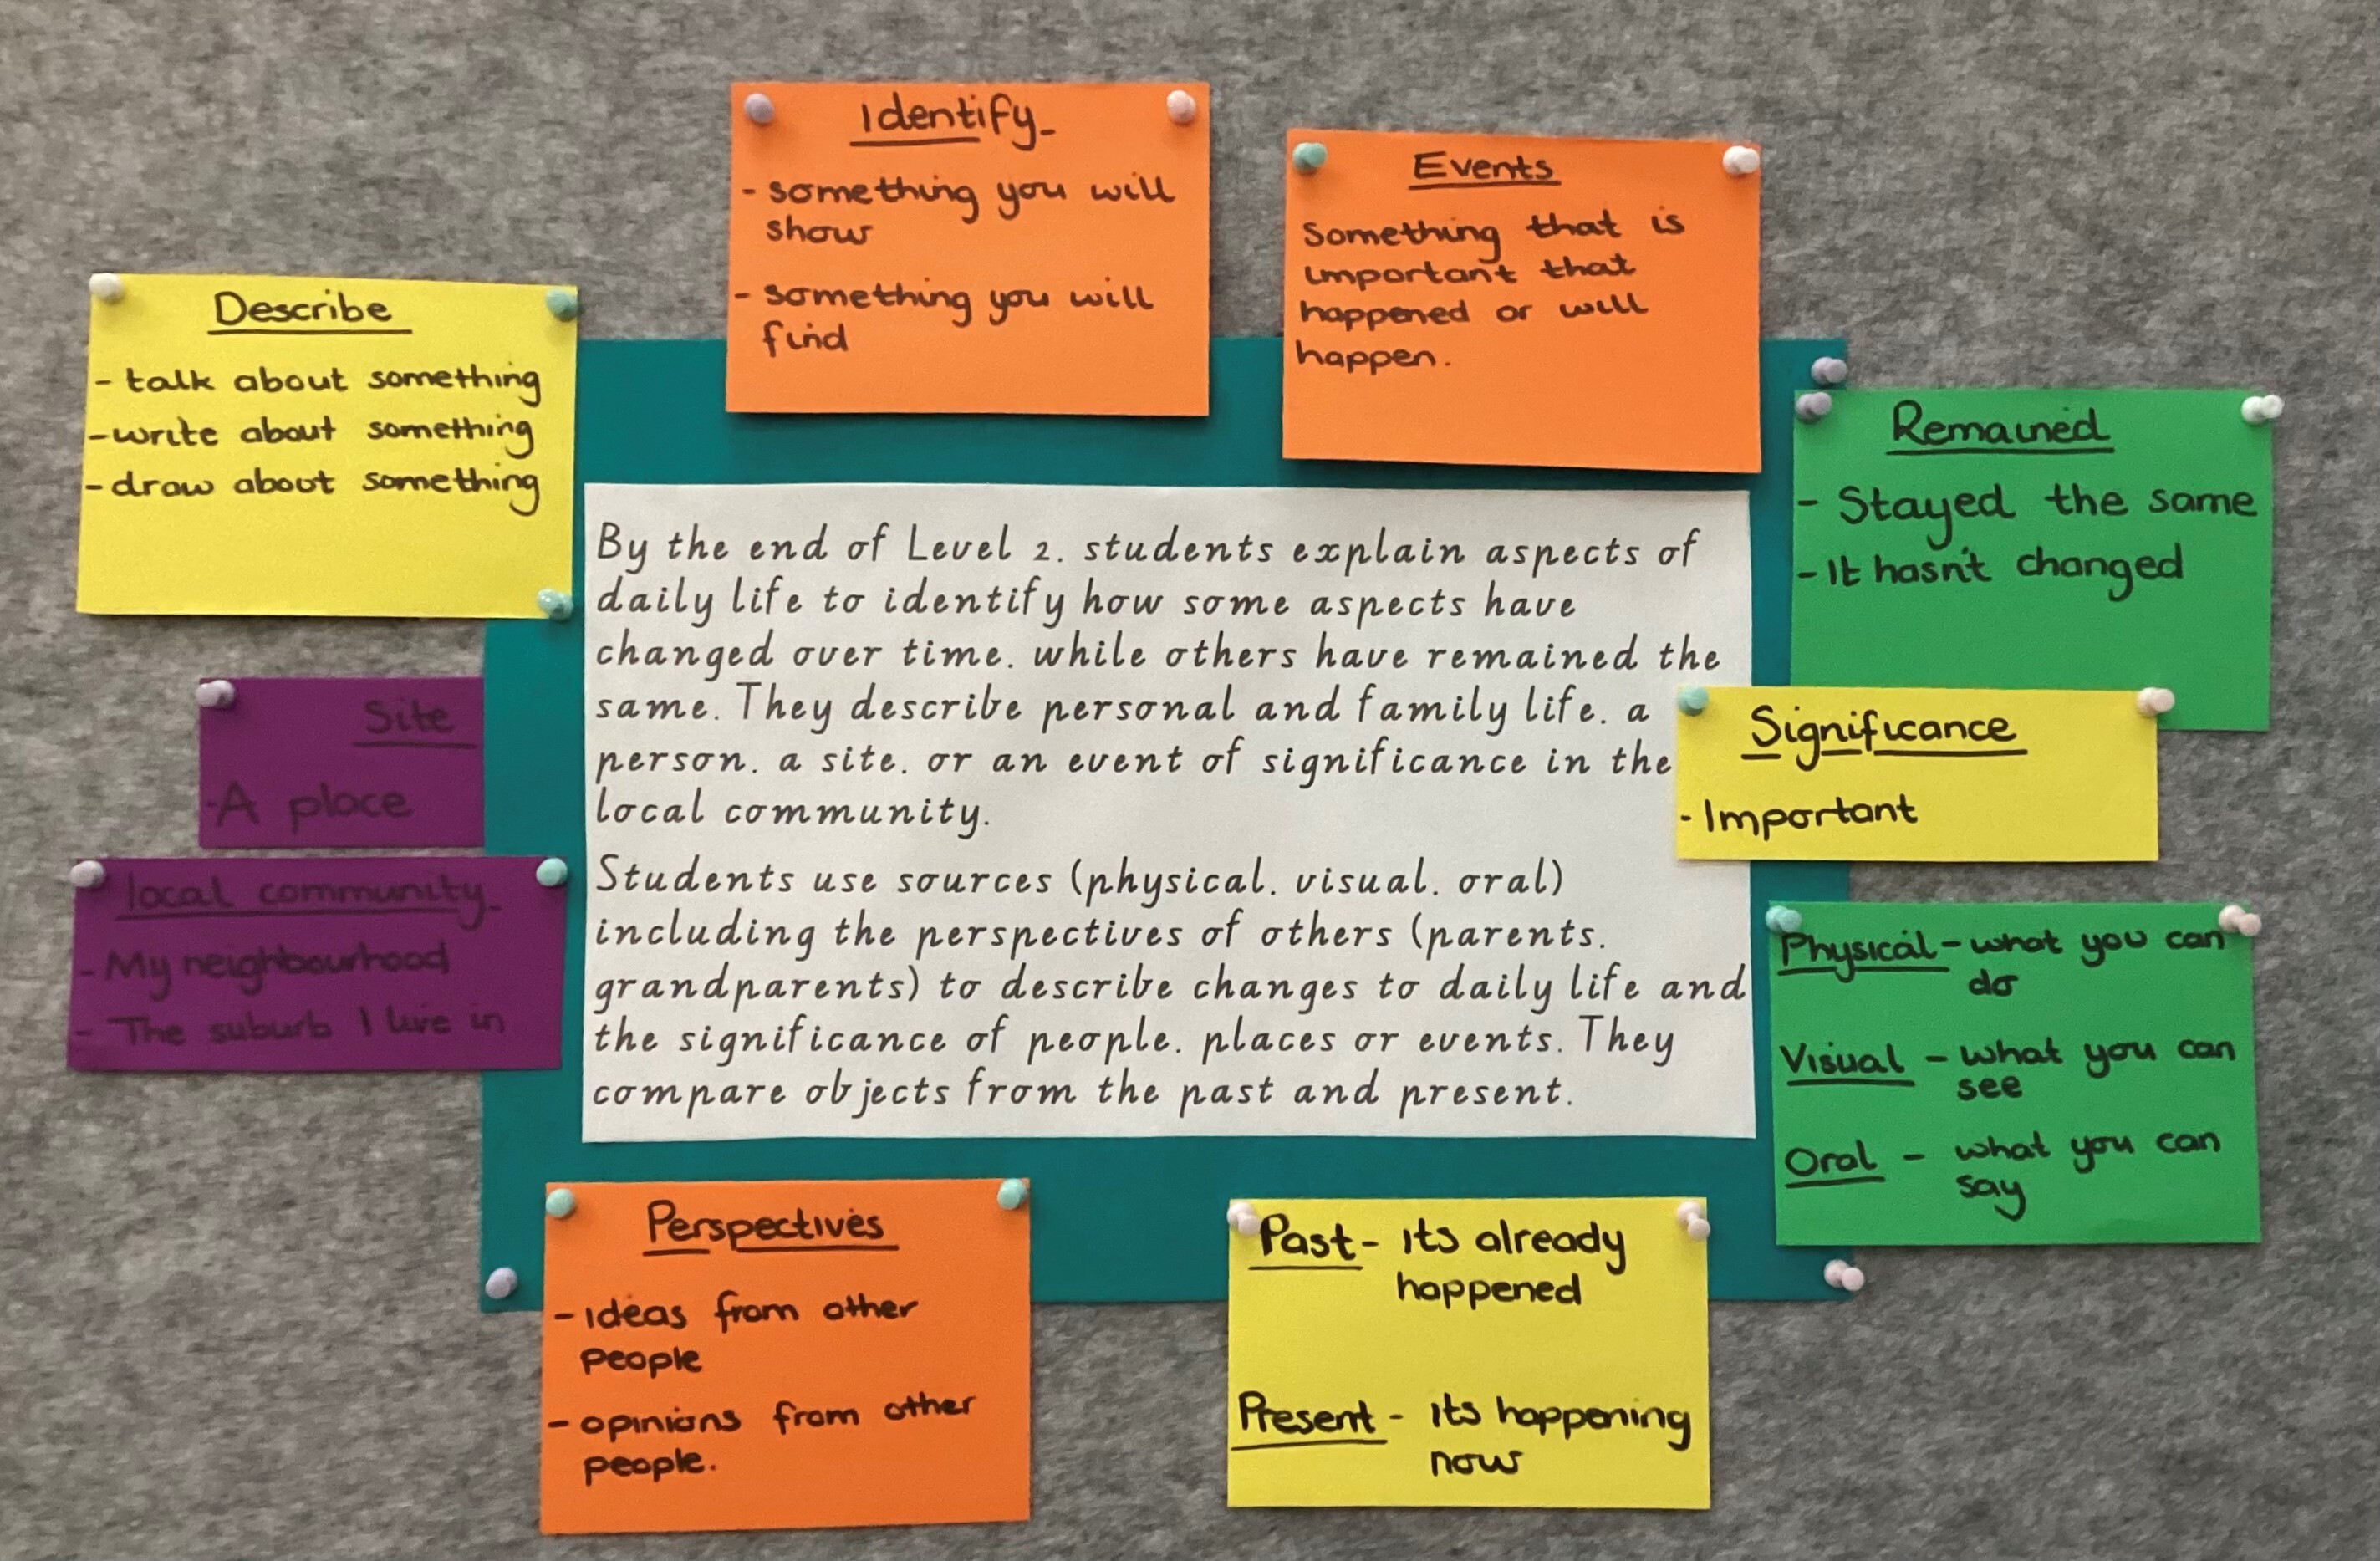 Identify
- something you will
show
- something you will
find
Events
Something that is
important that
happened or will
happen.
Describe
- talk about something
- write about something
- draw about something
Remained
- Stayed the same
- It hasn't changed
By the end of Level 2. students explain aspects of
daily life to identify how some aspects have
changed over time. while others have remained the
same. They describe personal and family life. a
person. a site. or an event of significance in the
local community.
Students use sources (physical. visual. oral)
including the perspectives of others (parents.
grandparents) to describe changes to daily life and
the significance of people. places or events. They
compare objects from the past and present.
Site
- A place
Significance
- Important
local community
- My neighbourhood
- The suburb I live in
Physical - what you can
do
Visual - what you can
see
Oral - what you can
say
Perspectives
- ideas from other
people
- opinions from other
people.
Past - its already
happened
Present - its happening
now